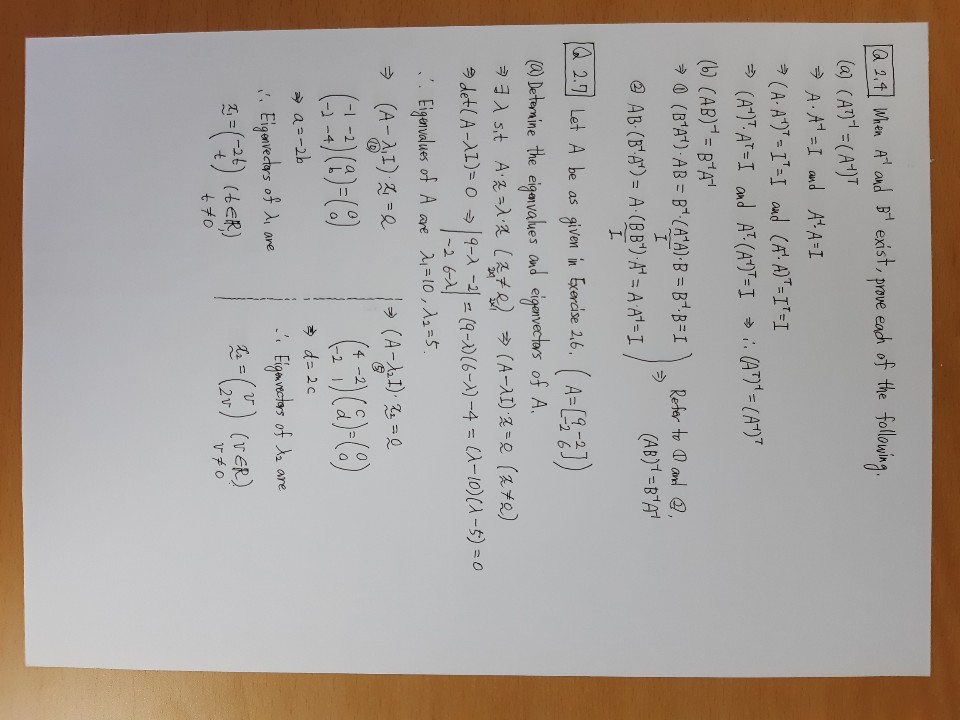 Q 2.4 When A⁻¹ and B⁻¹ exist, prove each of the following.
(a) (Aᵀ)⁻¹ = (A⁻¹)ᵀ
⇒ A·A⁻¹ = I and A⁻¹·A = I
⇒ (A·A⁻¹)ᵀ = Iᵀ = I and (A⁻¹·A)ᵀ = Iᵀ = I
⇒ (A⁻¹)ᵀ·Aᵀ = I and Aᵀ·(A⁻¹)ᵀ = I ⇒ ∴ (Aᵀ)⁻¹ = (A⁻¹)ᵀ
(b) (AB)⁻¹ = B⁻¹A⁻¹
⇒ ① (B⁻¹A⁻¹)·AB = B⁻¹·(A⁻¹A)·B = B⁻¹·B = I
I
② AB·(B⁻¹·A⁻¹) = A·(BB⁻¹)·A⁻¹ = A·A⁻¹ = I
I
⇒ Refer to ① and ②,
(AB)⁻¹ = B⁻¹A⁻¹
Q 2.7 Let A be as given in Exercise 2.6. (A = [9 -2
-2 6])
(a) Determine the eigenvalues and eigenvectors of A.
⇒ ∃ λ s,t A·x = λ·x (x ≠ 0) ⇒ (A-λI)·x = 0 (x ≠ 0)
2×1 2×1
⇒ det(A-λI) = 0 ⇒ |9-λ -2
-2 6-λ| = (9-λ)(6-λ)-4 = (λ-10)(λ-5) = 0
∴ Eigenvalues of A are λ₁=10, λ₂=5.
⇒ (A-λ₁I)·x₁ = 0
⑩
(-1 -2
-2 -4)(a
b) = (0
0)
⇒ a = -2b
∴ Eigenvectors of λ₁ are
x₁ = (-2t
t) (t∈ℝ,
t≠0)
⇒ (A-λ₂I)·x₂ = 0
⑤
(4 -2
-2 1)(c
d) = (0
0)
⇒ d = 2c
∴ Eigenvectors of λ₂ are
x₂ = (v
2v) (v∈ℝ,
v≠0)